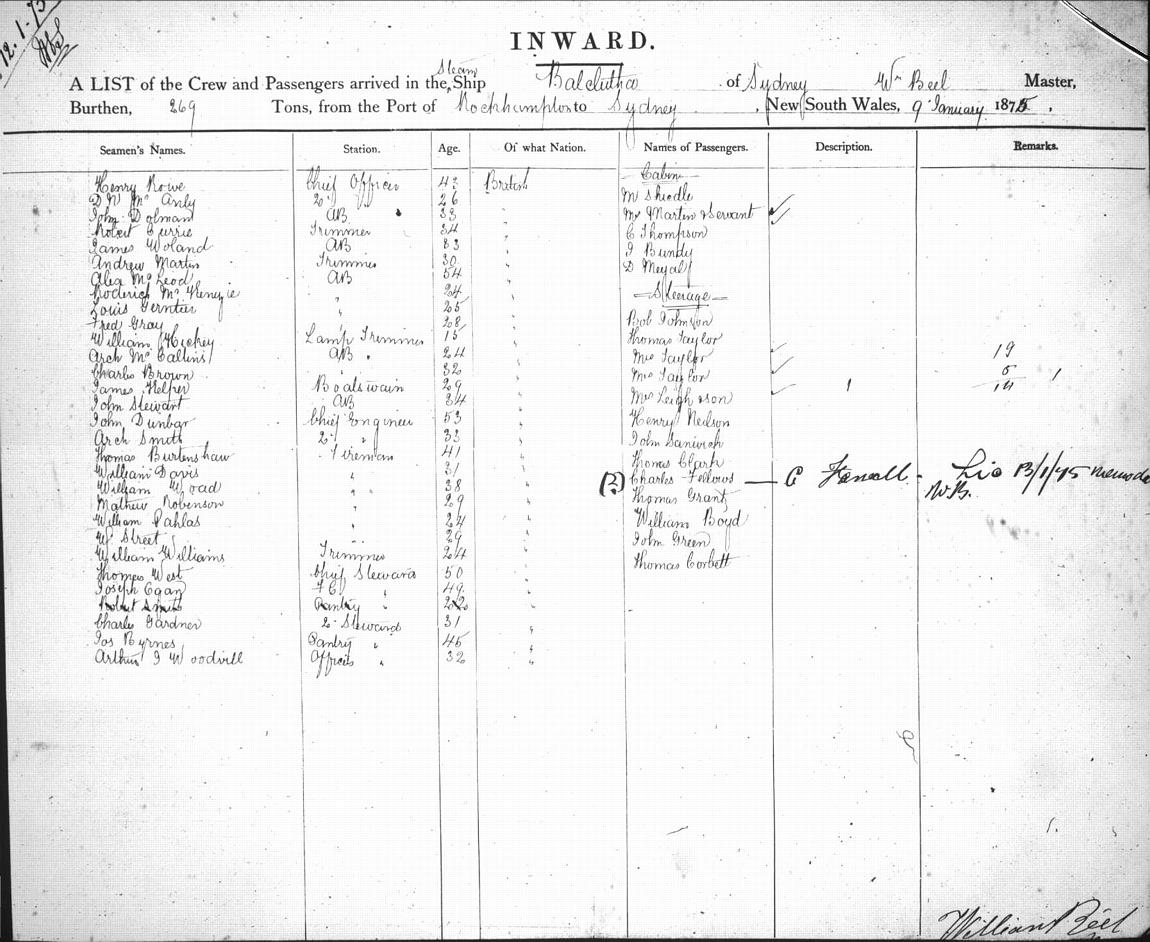 12.1.75
INWARD.
A LIST of the Crew and Passengers arrived in the Steam Ship Balclutha of Sydney Wm Beel Master,
Burthen, 269 Tons, from the Port of Rockhampton to Sydney, New South Wales, 9 January 1875.
Seamen's Names. Station. Age. Of what Nation. Names of Passengers. Description. Remarks.
Cabin
Henry Rowe Chief Officer 43 British
26 M
John Dolman AB 33 " Mrs Martin & Servant
Robert Currie Trimmer 34 " C Thompson
James Woland AB 33 " J Bundy
Andrew Martin Trimmer 30 " D
Alex McLeod AB 54 "
Roderick McKenzie " 24 " Steerage
Louis " 25 "
Fred Gray " 28 " Bob Johnson
William Hickey Lamp Trimmer 15 " Thomas Taylor
Arch Mc AB " 24 " Mrs Taylor 19
Charles Brown 32 " Miss Taylor 5
James Boatswain 29 " Mrs Leigh son 1 14 1
John Stewart AB 34 " Henry Neilson
John Dunbar Chief Engineer 53 " John
Arch Smith 2 " 33 " Thomas Clark
Thomas Burtenshaw Fireman 41 "
William Davis " 31 " (B) Charles Fellows — C
William Woad " " 38 " Thomas Grant
Mathew Robinson " 29 " William Boyd
William Pahlas " 24 " John Green
W Street " 29 " Thomas Corbett
William Williams Trimmer 24 "
Thomas West Chief Steward 50 "
Joseph Egan F C " 49 "
Robert Smith Pantry " 22 "
Charles Gardner 2 Steward 31 "
Jos Byrnes Pantry " 45 "
Arthur J Woodvill Officers " 32 "
William Beel